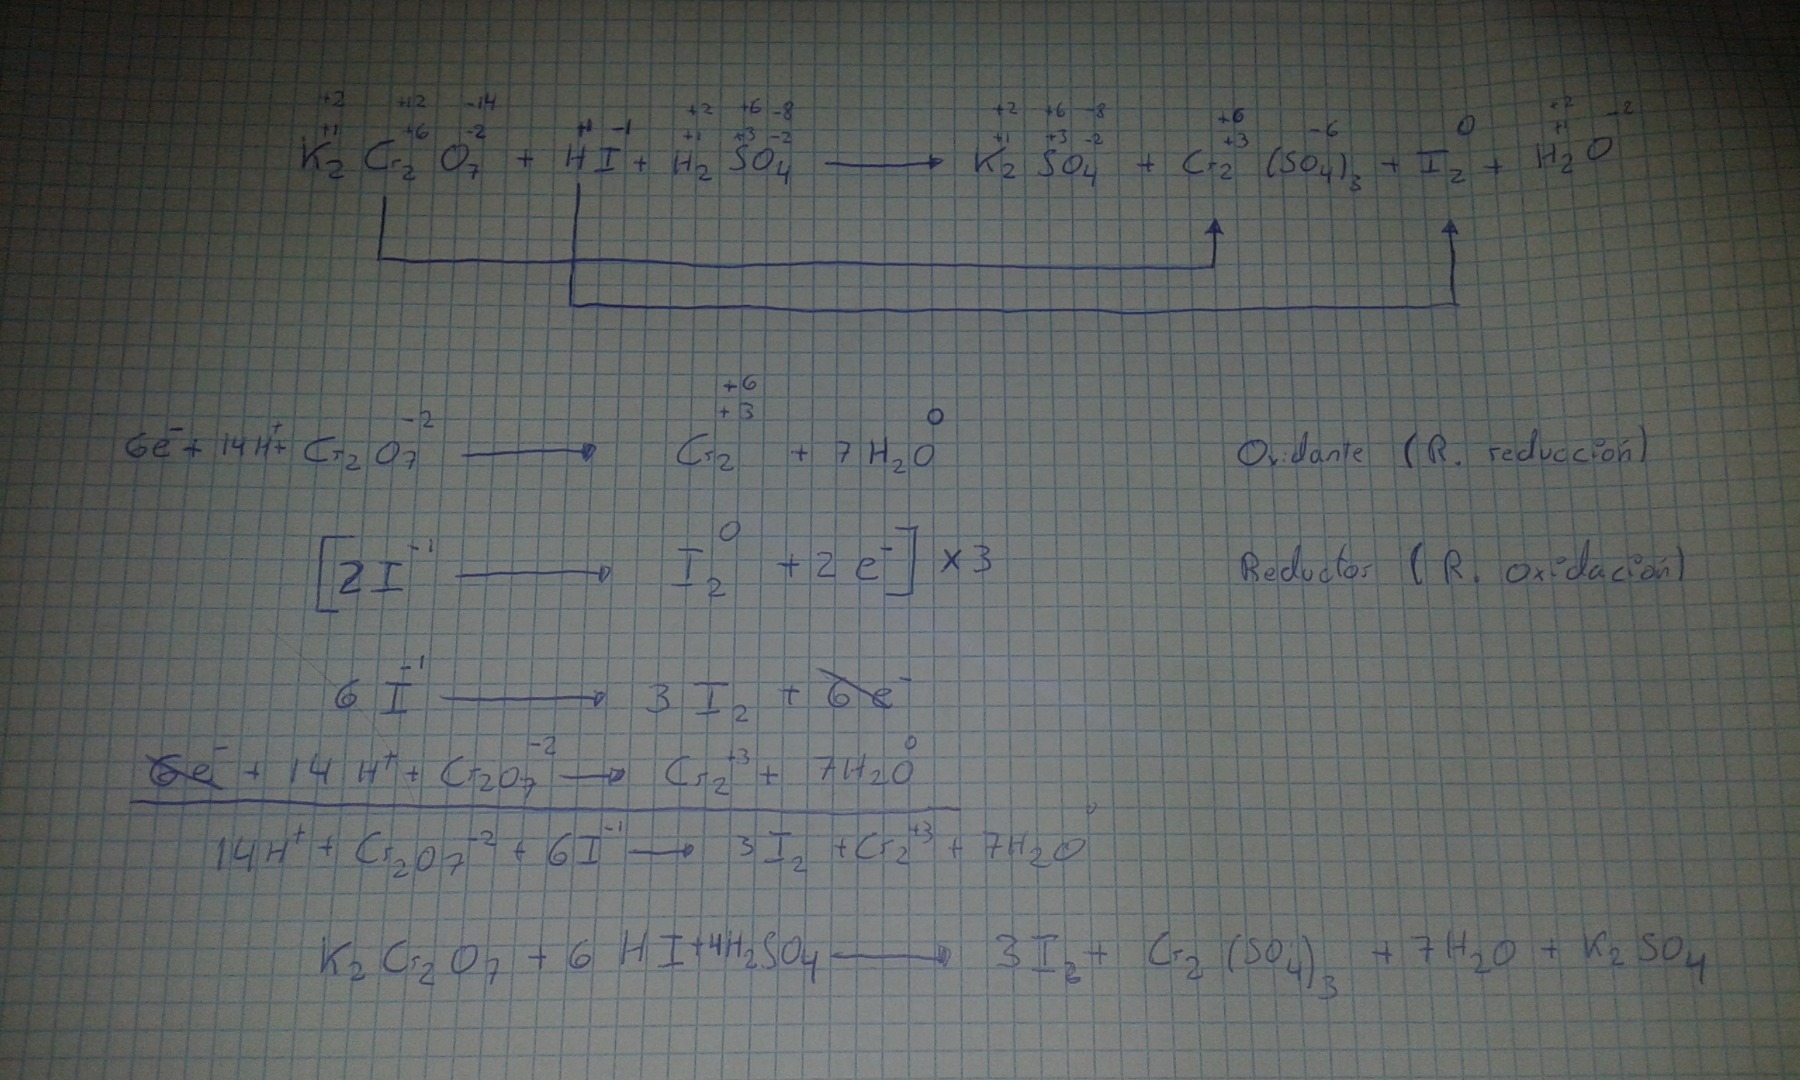 +2 +12 -14 +2 +6 -8 +2 +6 -8 +6 +2
+1 +6 -2 +1 -1 +1 +3 -2 +1 +3 -2 +3 -6 0 +1 -2
K₂ Cr₂ O₇ + HI + H₂ SO₄ → K₂ SO₄ + Cr₂ (SO₄)₃ + I₂ + H₂O
+6
+3
6e⁻ + 14H⁺ + Cr₂O₇⁻² → Cr₂ + 7H₂O⁰ Oxidante (R. reducción)
[2I⁻¹ → I₂⁰ + 2e⁻] x 3 Reductor (R. oxidación)
6I⁻¹ → 3I₂ + 6e⁻
6e⁻ + 14H⁺ + Cr₂O₇⁻² → Cr₂⁺³ + 7H₂O⁰
14H⁺ + Cr₂O₇⁻² + 6I⁻¹ → 3I₂ + Cr₂⁺³ + 7H₂O⁰
K₂Cr₂O₇ + 6HI + 4H₂SO₄ → 3I₂ + Cr₂(SO₄)₃ + 7H₂O + K₂SO₄